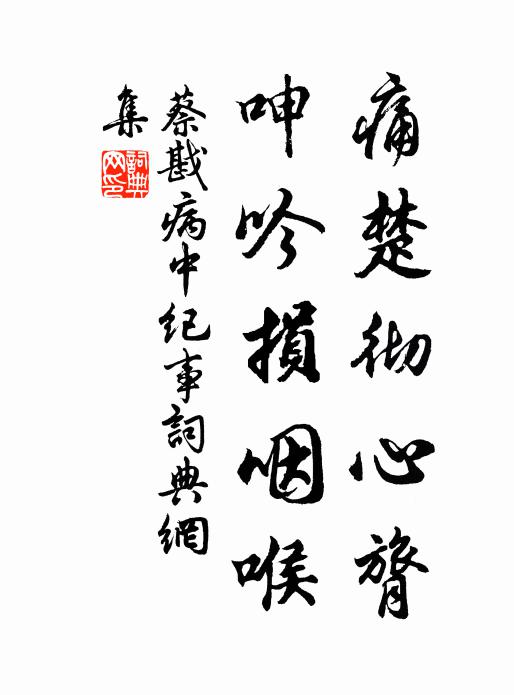 痛楚彻心膂
呻吟損咽喉
蔡戡病中纪事詞典網
集
詞典
网印